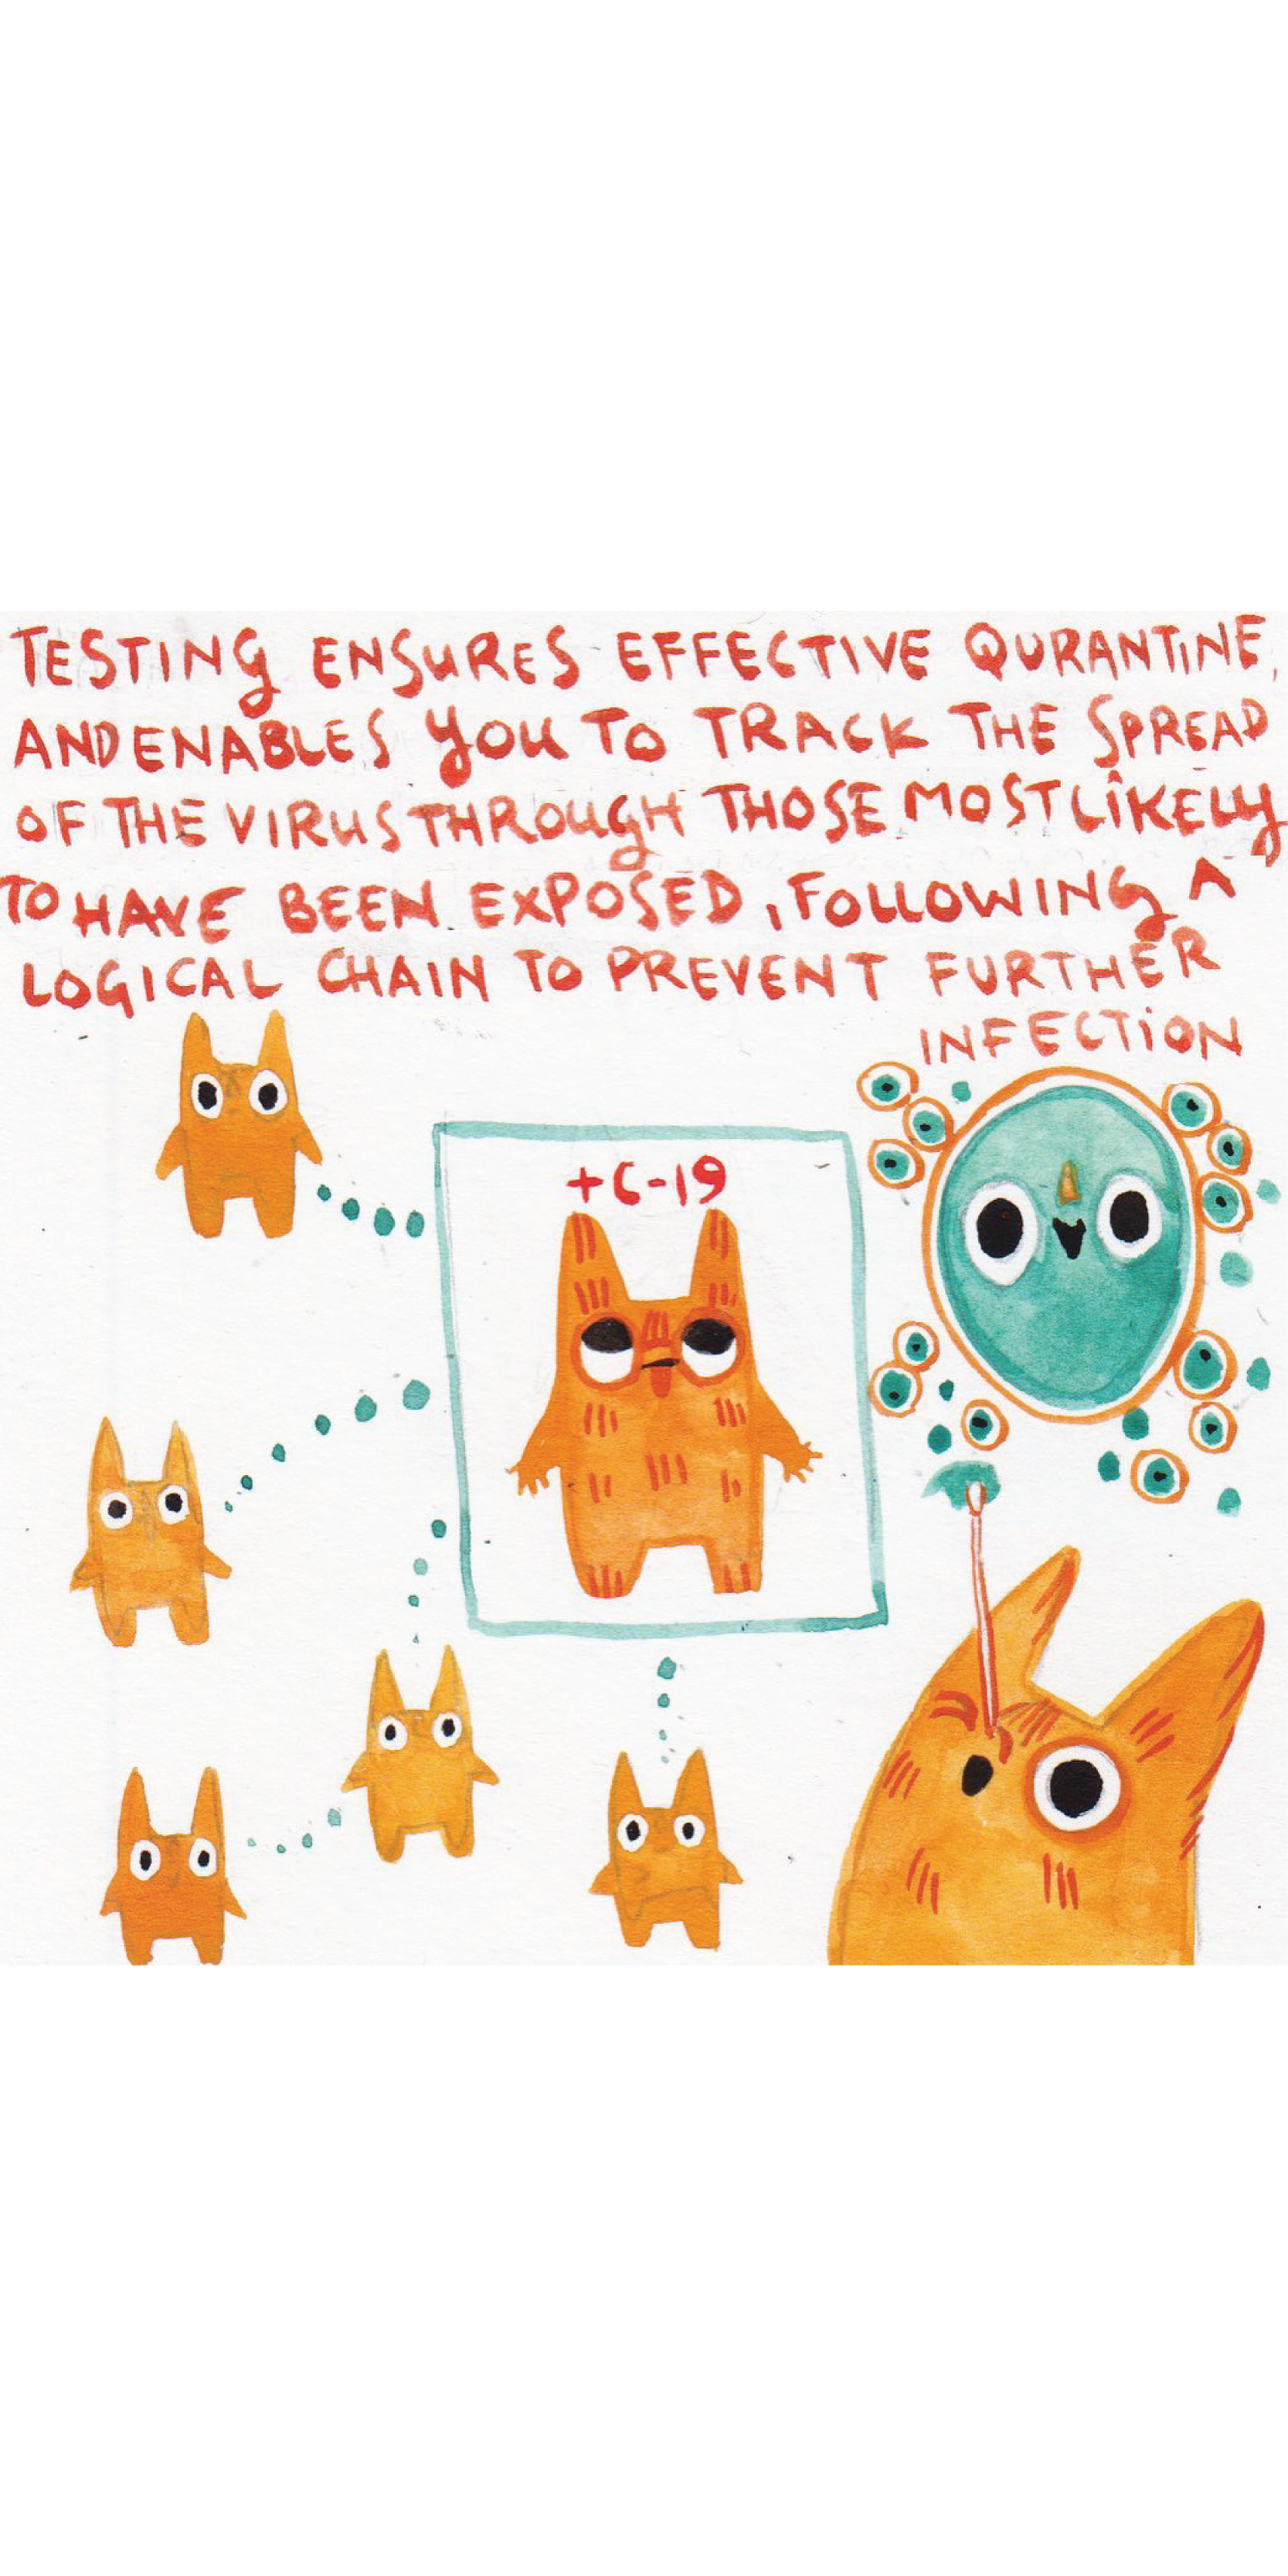 TESTING ENSURES EFFECTIVE QURANTINE,
AND ENABLES YOU TO TRACK THE SPREAD
OF THE VIRUS THROUGH THOSE MOST LIKELY
TO HAVE BEEN EXPOSED, FOLLOWING A
LOGICAL CHAIN TO PREVENT FURTHER
INFECTION
+C-19